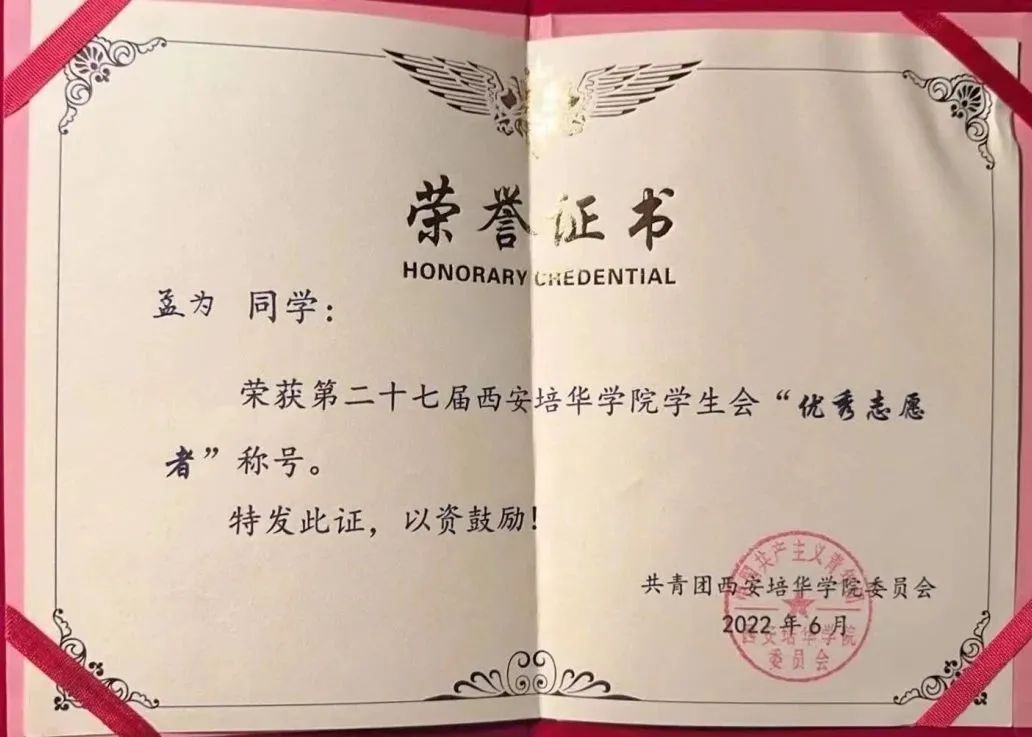 荣誉证书
HONORARY CREDENTIAL
孟为 同学：
荣获第二十七届西安培华学院学生会“优秀志愿
者”称号。
特发此证，以资鼓励！
共青团西安培华学院委员会
2022 年 6 月
中国共产主义青年团
西安培华学院
委员会